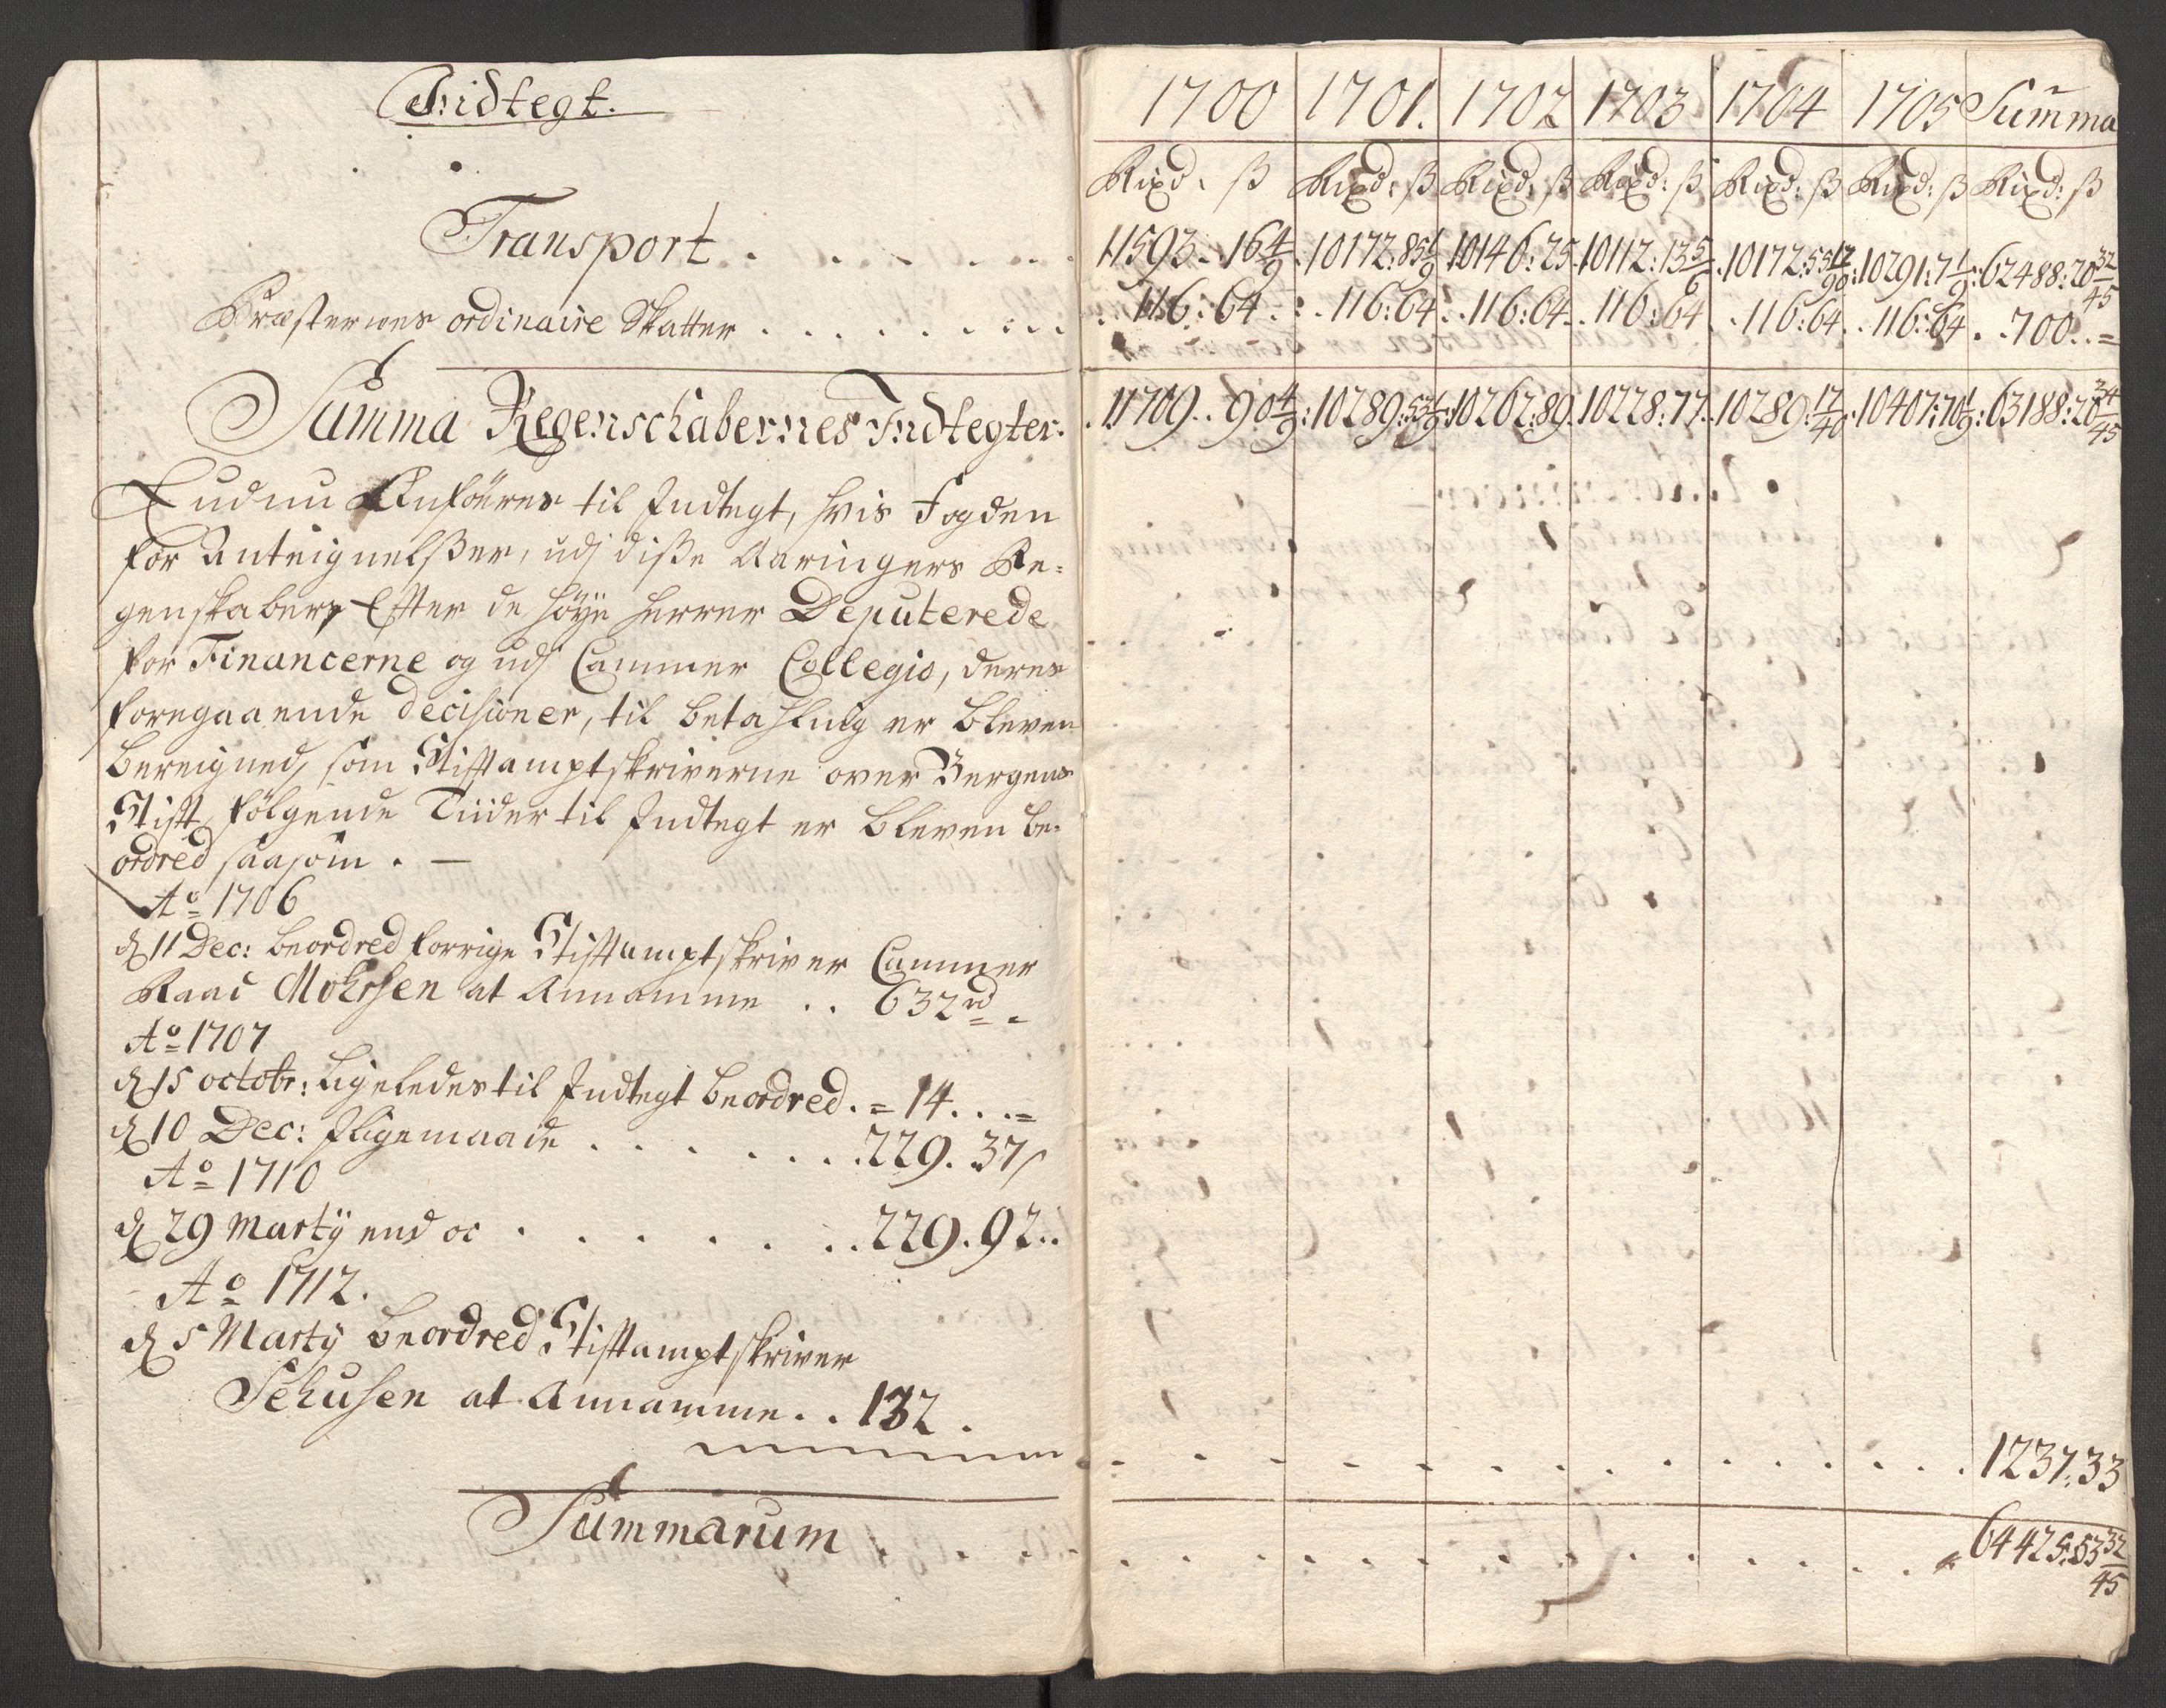 Indtegt.
Transport
Præsternes ordinaire Skatter
Summa Regenschabernes Indtegter.
Endnu Anføres til Indtegt, hvis Fogden
for Anteignelsser, udj disse Aaringers Re-
genskaber, Efter de høye Herrer Deputerede
for Financerne og udj Cammer Collegio, deres
foregaaende decisioner, til betahling er bleven
bereigned, som Stiftamptskriverne over Bergens
Stift følgende Tiider til Indtegt er bleven be-
ordred saasom. —
Ao 1706
d 11 Dec: beordred forrige Stiftamptskriver Cammer
Raad Mohrsen at Annamme .. 632 rd =
Ao 1707
d 15 octobr: ligeledes til Indtegt beordred . = 14 . . . =
d 10 Dec: Iligemaade . . . . . . . 229. 37
Ao 1710
d 29 Martij end oc . . . . . . . 229. 92 . .
Ao 1712.
d 5 Martij beordred Stiftamptskriver
Sehusen at Annamme . . 132 .
Summarum
1700 1701. 1702 1703 1704 1705 Summa
Rixd: ß Rixd: ß Rixd: ß Rixd: ß Rixd: ß Rixd: ß Rixd: ß
11593. 16 4/9 10172: 85 1/9 10146: 25 10112: 13 5/6 10172: 55 10291: 7 1/9 62488: 20 32/45
116: 64 116: 64 116: 64 116: 64 116: 64 116: 64 700 . . =
11709. . 90 4/9 10289: 53 1/9 10262: 89 10228: 77 10289: 10407: 70 1/9 63188: 20
1237: 33
64425: 53 32/45